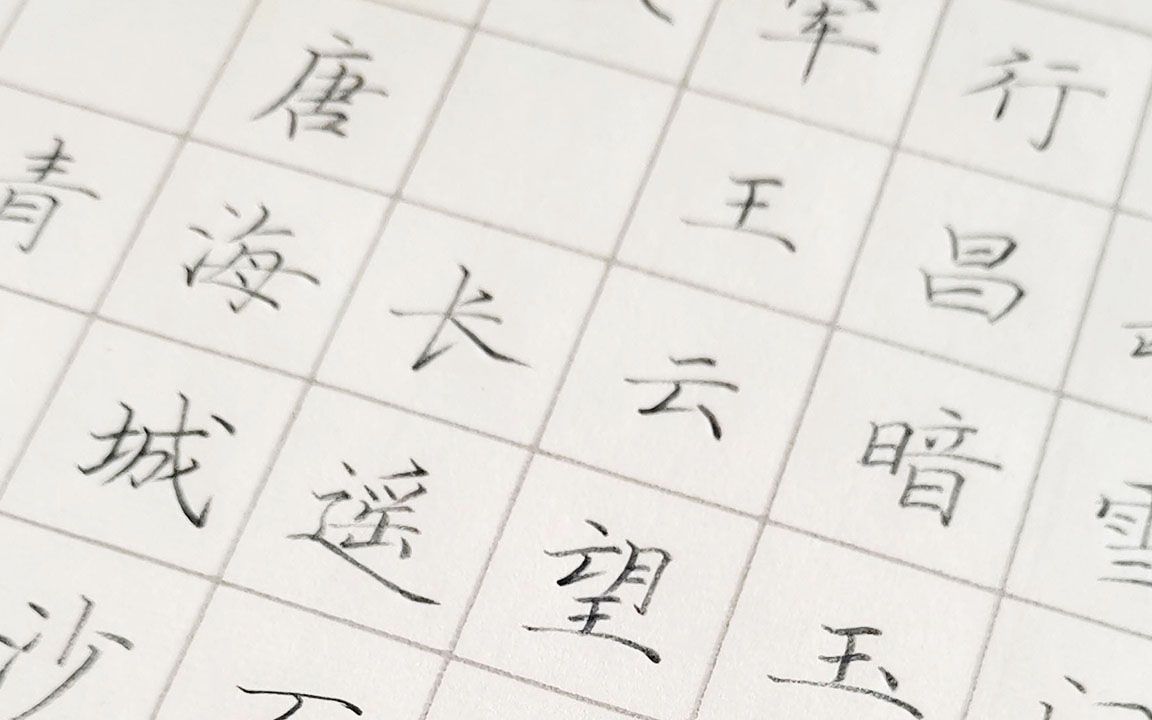 军行
唐 王昌
青海长云暗雪
城遥望玉
沙